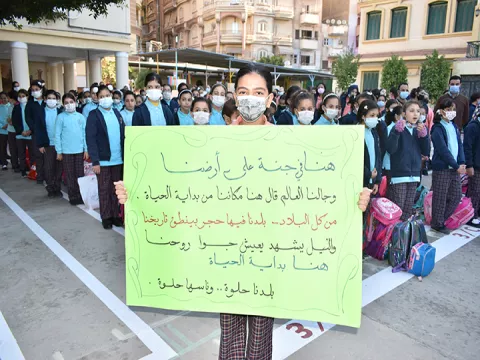 هنا في جنة على أرضنا
وجالنا العالم قال هنا مكاننا من بداية الحياة .
من كل البلاد .. بلدنا فيها حجر بينطق تاريخنا
والنيل يشهد يعيش جوا روحنا
هنا بداية الحياة
بلدنا حلوة .. وناسها حلوة .
3